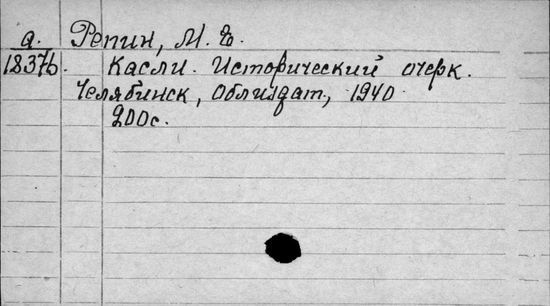 а. Репин, М. Е.
18376. Касли. Исторический очерк.
Челябинск, Облиздат, 1940
200с.